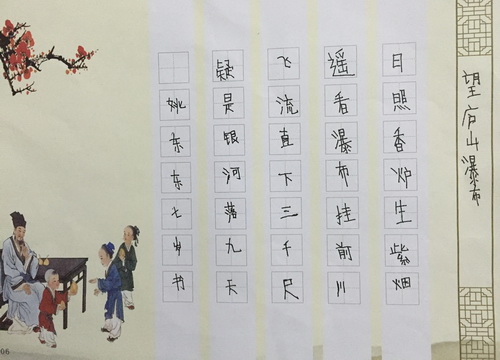 望庐山瀑布
日照香炉生紫烟
遥看瀑布挂前川
飞流直下三千尺
疑是银河落九天
姚东东七岁书
06